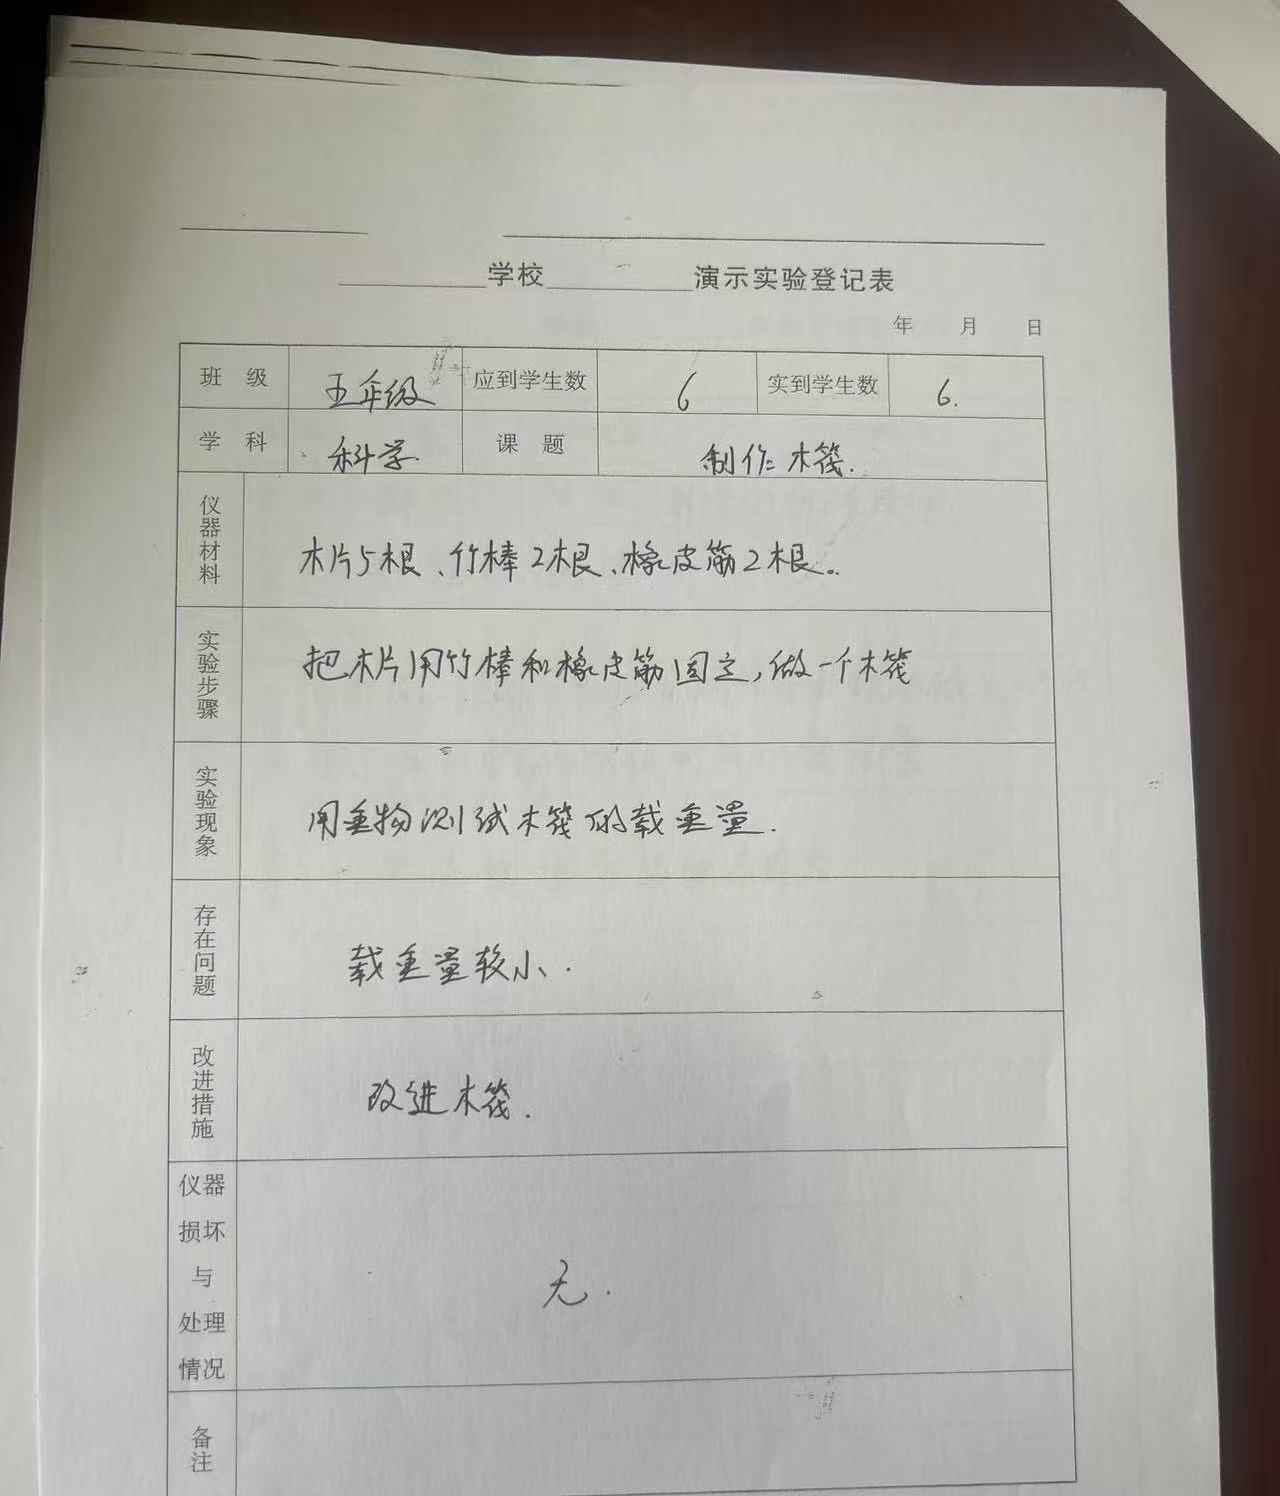 学校 演示实验登记表
年 月 日
班 级 五年级 应到学生数 6 实到学生数 6.
学 科 科学. 课 题 制作木筏.
仪器材料 木片5根、竹棒2根、橡皮筋2根。
实验步骤 把木片用竹棒和橡皮筋固定,做一个木筏
实验现象 用重物测试木筏的载重量.
存在问题 载重量较小.
改进措施 改进木筏.
仪器
损坏
与
处理
情况
无.
备注